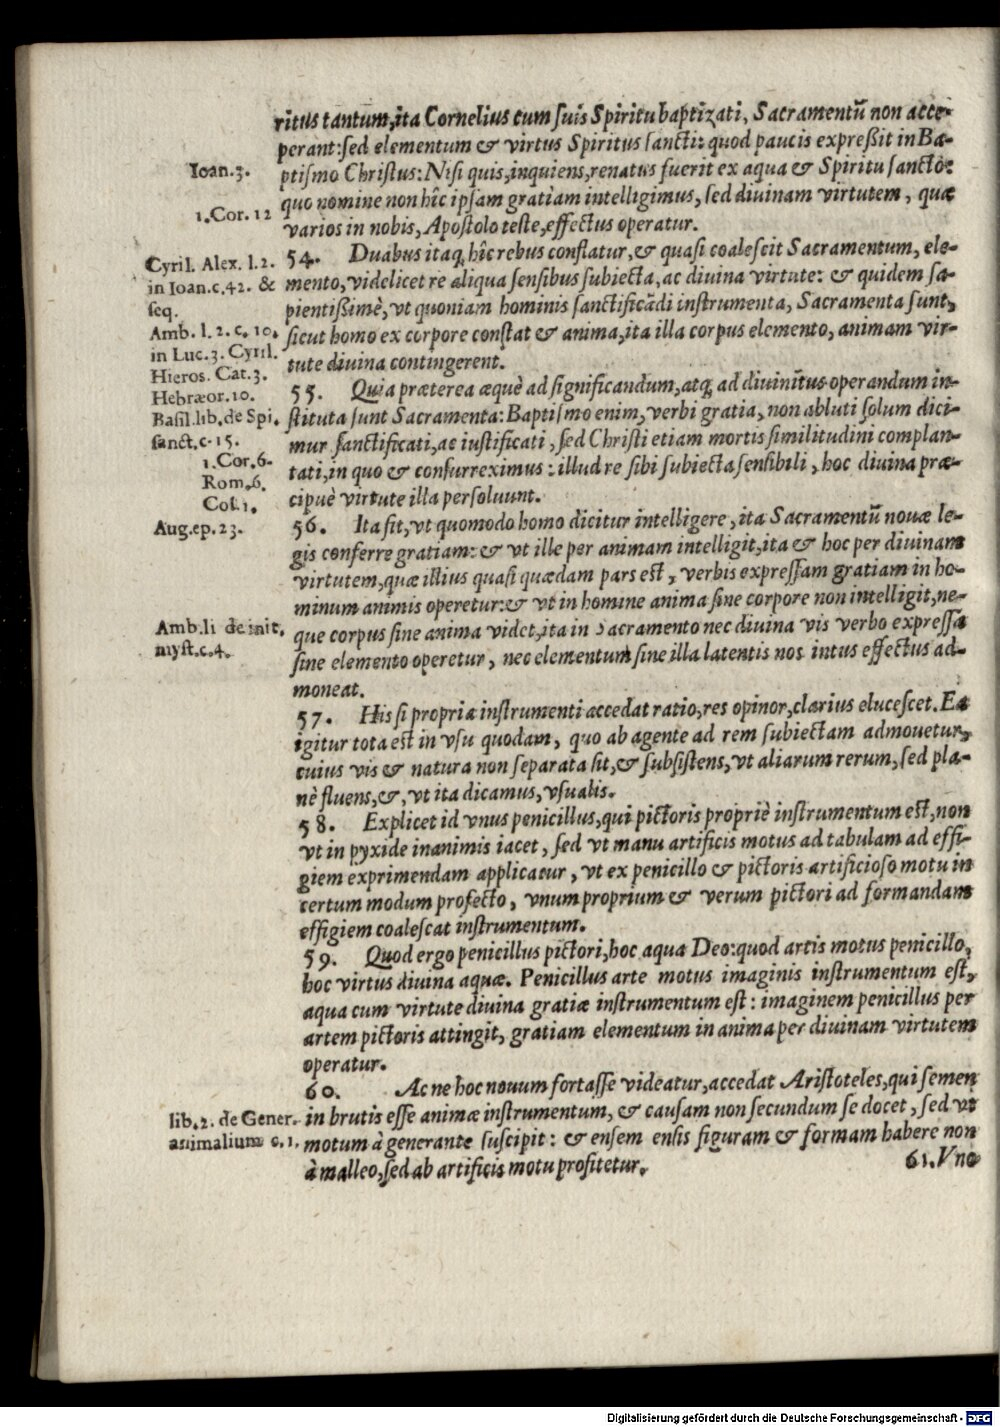 ritus tantum, ita Cornelius cum suis Spiritu baptizati, Sacramentũ non acce-
perant: sed elementum & virtus Spiritus sancti: quod paucis expreßit in Ba-
Ioan.3.
ptismo Christus: Nisi quis, inquiens, renatus fuerit ex aqua & Spiritu sancto:
quo nomine non hîc ipsam gratiam intelligimus, sed divinam virtutem, quæ
1.Cor.12
varios in nobis, Apostolo teste, effectus operatur.
Cyril. Alex. l.2.
in Ioan.c.42. &
seq.
Amb. l.2.c.10.
in Luc.3. Cyril.
Hieros. Cat.3.
Hebræor.10.
Basil.lib.de Spi.
sanct.c.15.
1.Cor.6.
Rom.6.
Col.1.
54. Duabus itaq; hîc rebus conflatur, & quasi coalescit Sacramentum, ele-
mento, videlicet re aliqua sensibus subiecta, ac divina virtute: & quidem sa-
pientißimè, vt quoniam hominis sanctificãdi instrumenta, Sacramenta sunt,
sicut homo ex corpore constat & anima, ita illa corpus elemento, animam vir-
tute divina contingerent.
55. Quia præterea æquè ad significandum, atq; ad diuinitus operandum in-
stituta sunt Sacramenta: Baptismo enim, verbi gratia, non abluti solum dici-
mur sanctificati, ac iustificati, sed Christi etiam mortis similitudini complan-
tati, in quo & consurreximus: illud re sibi subiecta sensibili, hoc divina præ-
cipuè virtute illa persoluunt.
Aug.ep.23.
56. Ita fit, vt quomodo homo dicitur intelligere, ita Sacramentũ nouæ le-
gis conferre gratiam: & vt ille per animam intelligit, ita & hoc per divinam
virtutem, quæ illius quasi quædam pars est, verbis expressam gratiam in ho-
minum animis operetur: & vt in homine anima sine corpore non intelligit, ne-
Amb.li de init.
myst.c.4.
que corpus sine anima videt, ita in Sacramento nec divina vis verbo expressa
sine elemento operetur, nec elementum sine illa latentis nos intus effectus ad-
moneat.
57. His si propria instrumenti accedat ratio, res opinor, clarius elucescet. Ea
igitur tota est in vsu quodam, quo ab agente ad rem subiectam admouetur,
cuius vis & natura non separata sit, & subsistens, vt aliarum rerum, sed pla-
nè fluens, &, vt ita dicamus, vsualis.
58. Explicet id vnus penicillus, qui pictoris propriè instrumentum est, non
vt in pyxide inanimis iacet, sed vt manu artificis motus ad tabulam ad effi-
giem exprimendam applicatur, vt ex penicillo & pictoris artificioso motu in
certum modum profecto, vnum proprium & verum pictori ad formandam
effigiem coalescat instrumentum.
59. Quod ergo penicillus pictori, hoc aqua Deo: quod artis motus penicillo,
hoc virtus divina aquæ. Penicillus arte motus imaginis instrumentum est,
aqua cum virtute divina gratiæ instrumentum est: imaginem penicillus per
artem pictoris attingit, gratiam elementum in anima per divinam virtutem
operatur.
60. Ac ne hoc nouum fortasse videatur, accedat Aristoteles, qui semen
lib.2. de Gener.
animalium c.1.
in brutis esse animæ instrumentum, & causam non secundum se docet, sed vt
motum à generante suscipit: & ensem ensis figuram & formam habere non
à malleo, sed ab artificis motu profitetur.
61. Vno
Digitalisierung gefördert durch die Deutsche Forschungsgemeinschaft - DFG